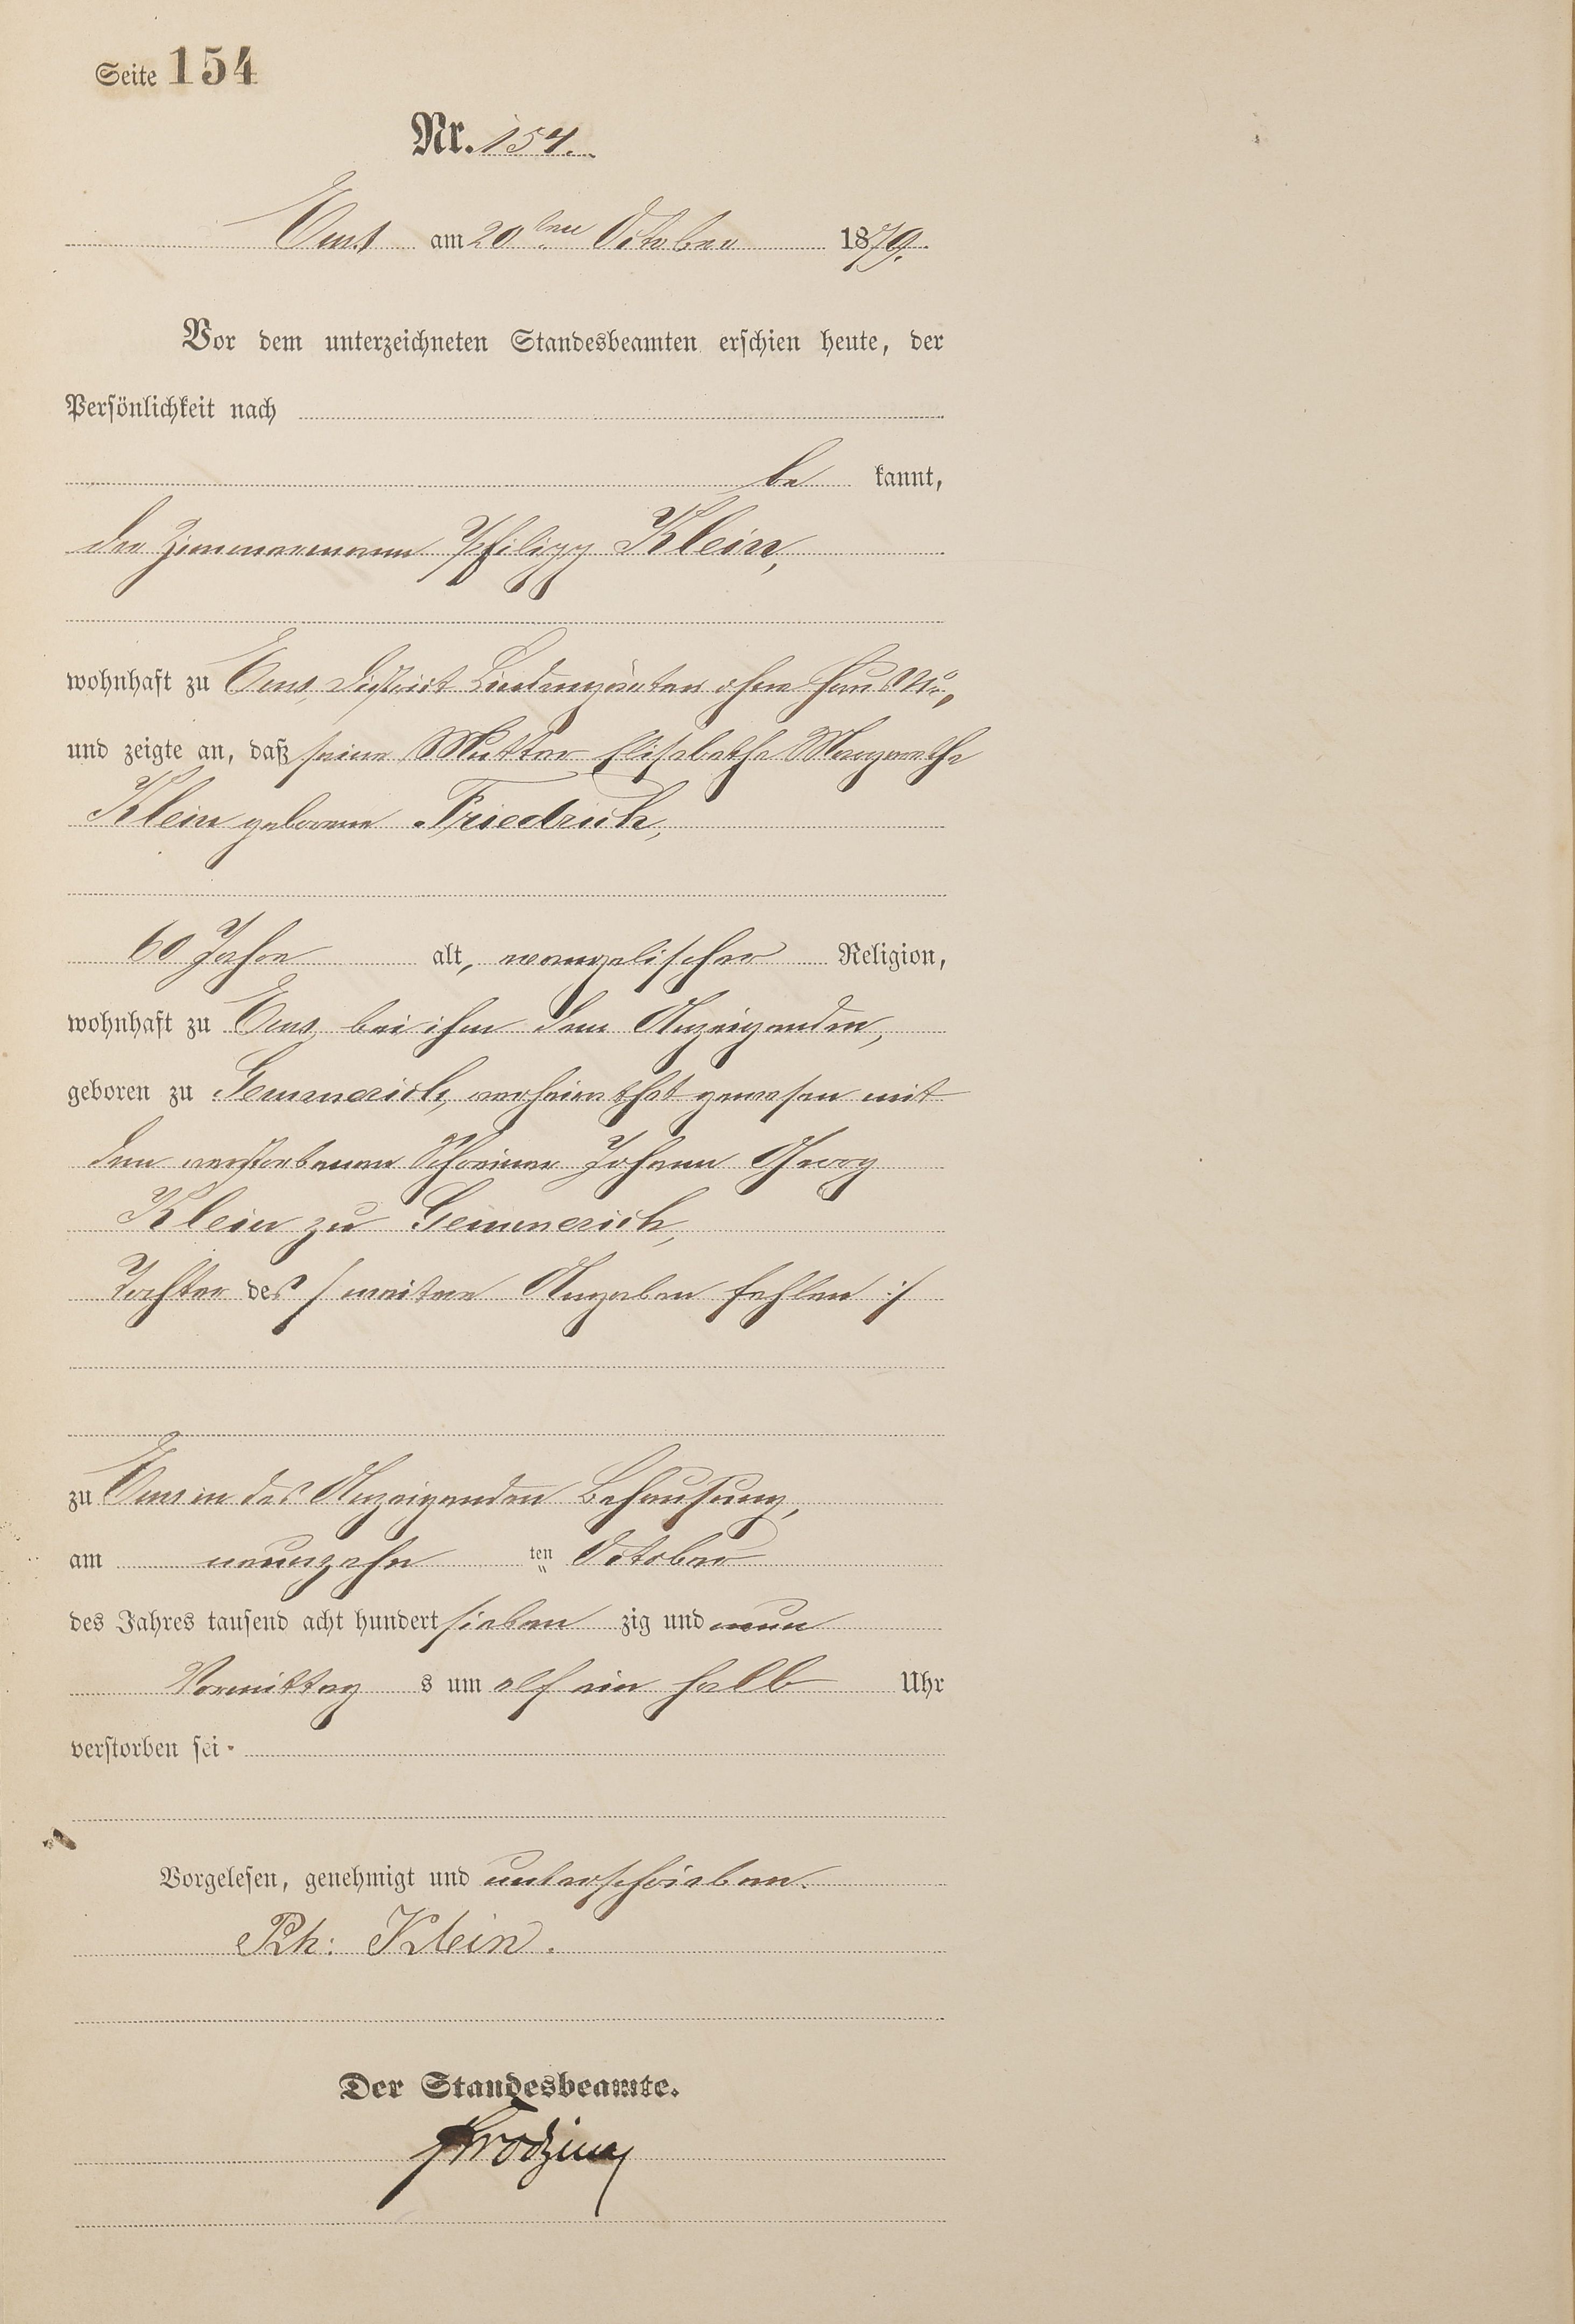 Seite 154
Nr. 154.
Ems am 20ten October 1879.
Vor dem unterzeichneten Standesbeamten erschien heute, der
Persönlichkeit nach
be kannt,
der Zimmermann Philipp Klein,
wohnhaft zu Ems, District ohne Haus Nr.,
und zeigte an, daß seine Mutter Elisabetha Margaretha
Klein geborene Friedrich,
60 Jahre alt, evangelischer Religion,
wohnhaft zu Ems bei ihm dem Anzeigenden,
geboren zu Gemmerich, verheirathet gewesen mit
dem verstorbenen Schreiner Johann Georg
Klein zu Gemmerich,
Tochter des / weitere Angaben fehlen :/
zu Ems in des Anzeigenden Behausung,
am neunzehn ten October
des Jahres tausend acht hundert sieben zig und neun
Vormittag s um elf ein halb Uhr
verstorben sei.
Vorgelesen, genehmigt und unterschrieben.
Ph: Klein.
Der Standesbeamte.